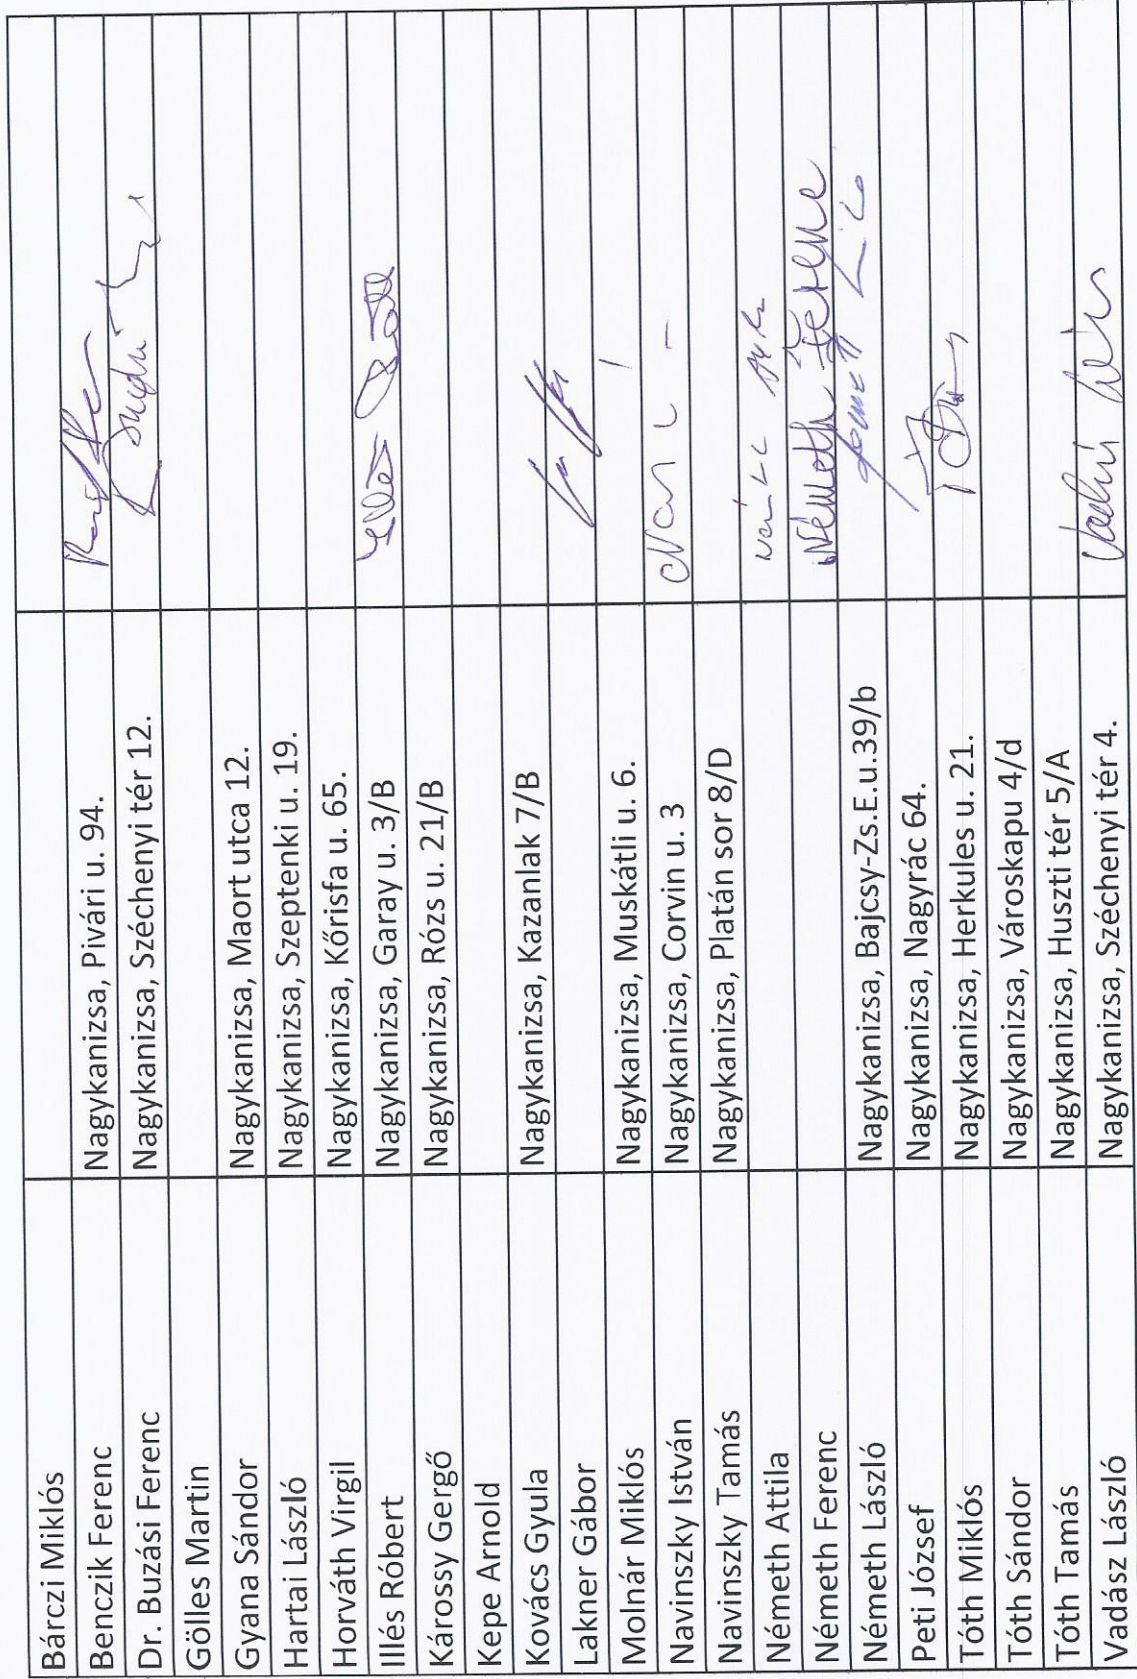 Bárczi Miklós
Benczik Ferenc Nagykanizsa, Pivári u. 94.
Dr. Buzási Ferenc Nagykanizsa, Széchenyi tér 12.
Gölles Martin
Gyana Sándor Nagykanizsa, Maort utca 12.
Hartai László Nagykanizsa, Szeptenki u. 19.
Horváth Virgil Nagykanizsa, Kőrisfa u. 65.
Illés Róbert Nagykanizsa, Garay u. 3/B
Károssy Gergő Nagykanizsa, Rózs u. 21/B
Kepe Arnold
Kovács Gyula Nagykanizsa, Kazanlak 7/B
Lakner Gábor
Molnár Miklós Nagykanizsa, Muskátli u. 6.
Navinszky István Nagykanizsa, Corvin u. 3
Navinszky Tamás Nagykanizsa, Platán sor 8/D
Németh Attila
Németh Ferenc Németh Ferenc
Németh László Nagykanizsa, Bajcsy-Zs.E.u.39/b
Peti József Nagykanizsa, Nagyrác 64.
Tóth Miklós Nagykanizsa, Herkules u. 21.
Tóth Sándor Nagykanizsa, Városkapu 4/d
Tóth Tamás Nagykanizsa, Huszti tér 5/A
Vadász László Nagykanizsa, Széchenyi tér 4.